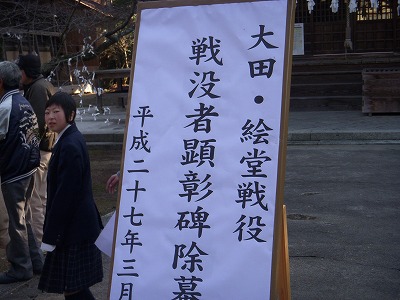 大田・絵堂戦役
戦没者顕彰碑除幕
平成二十七年三月